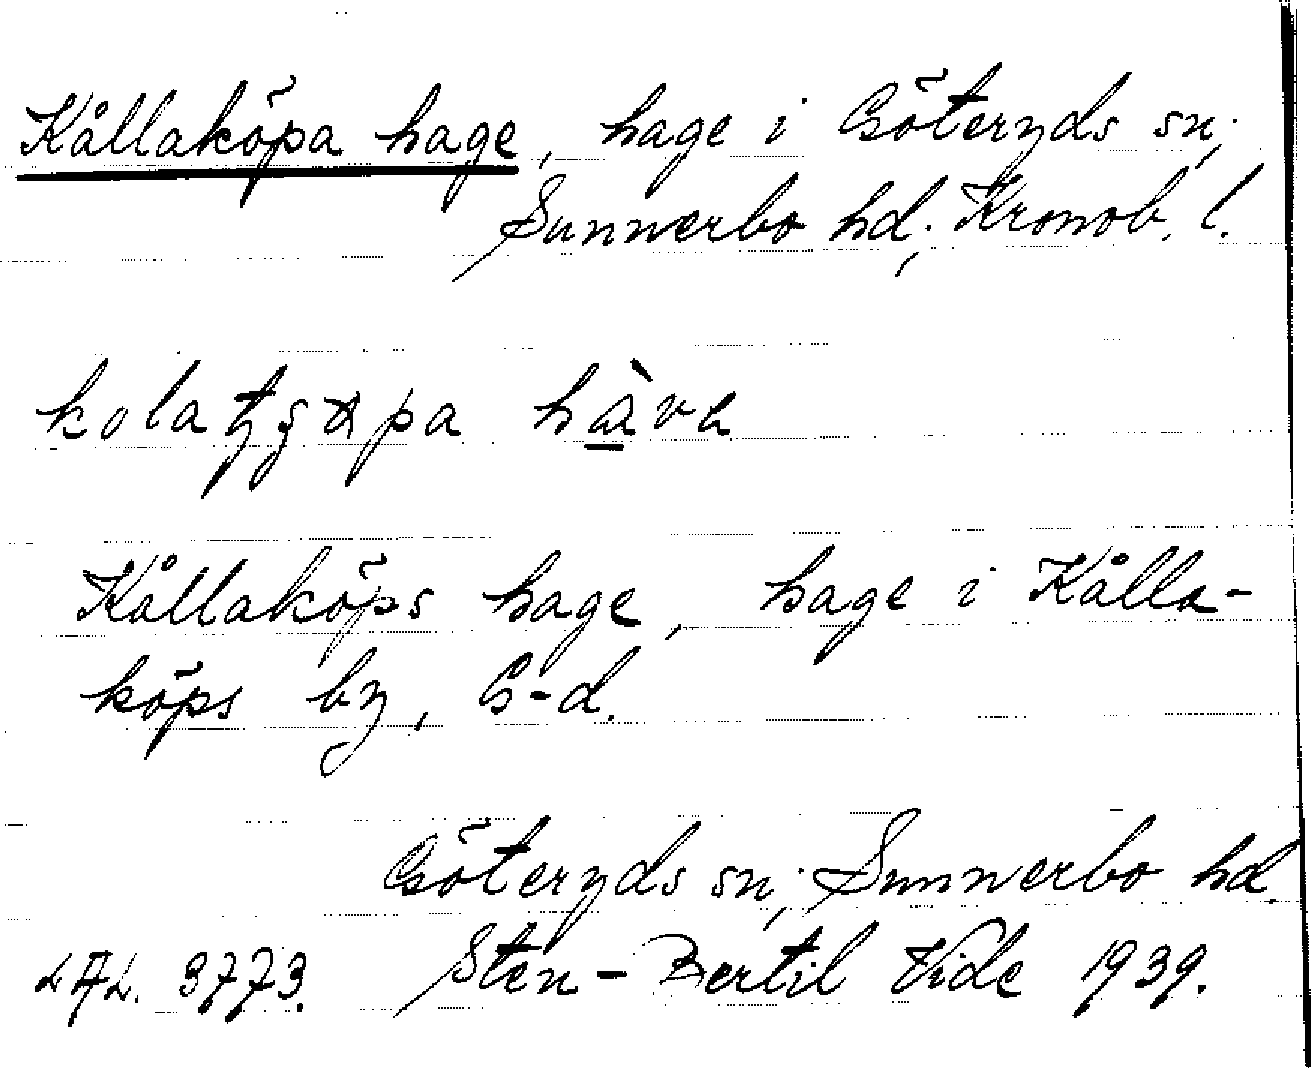 Kållaköpa hage, hage i Göteryds sn;
Sunnerbo hd; Kronob. l.
hàva
Kållaköps hage, hage i Kålla-
köps by, G-d.
Göteryds sn; Sunnerbo hd.
LAL. 3773. Sten-Bertil Vide 1939.